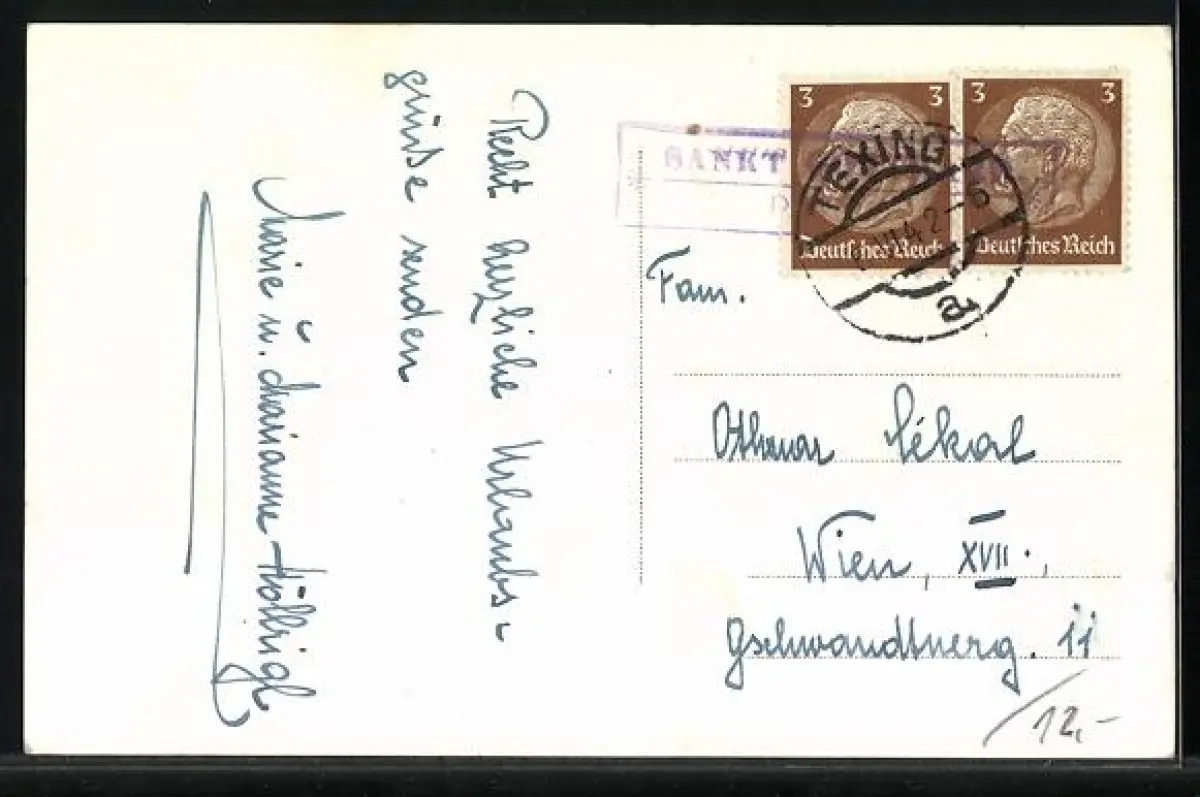 Recht herzliche Urlaubs-
grüße senden
Marie u. Marianne Höllrigl
3 3
Deutsches Reich
3 3
Deutsches Reich
SANKT
TEXING
42-6
a
Fam.
Othmar
Wien, XVII.,
Gschwandtnerg. 11
12,-